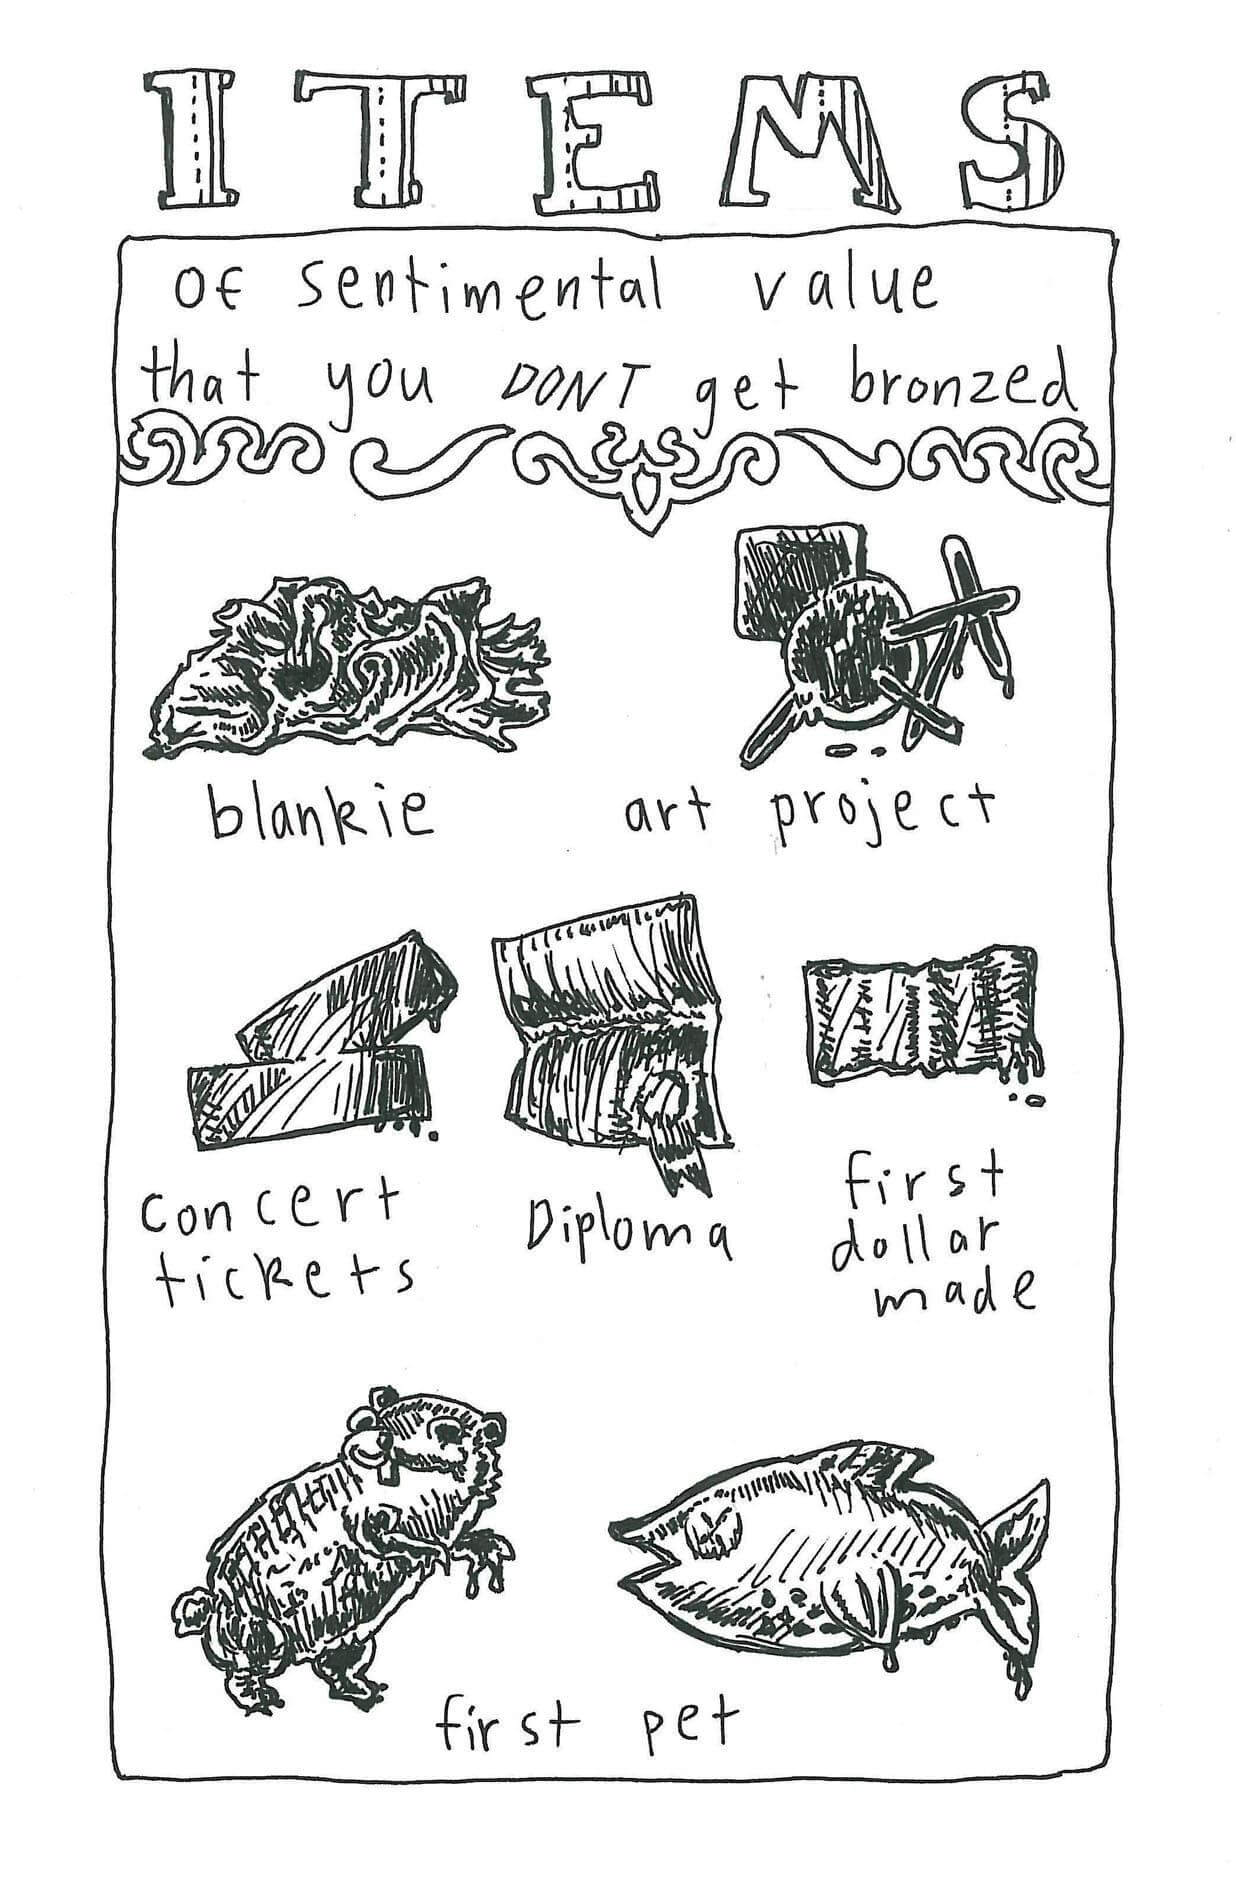 ITEMS
of sentimental value
that you DONT get bronzed
blankie
art project
concert
tickets
Diploma
first
dollar
made
first pet